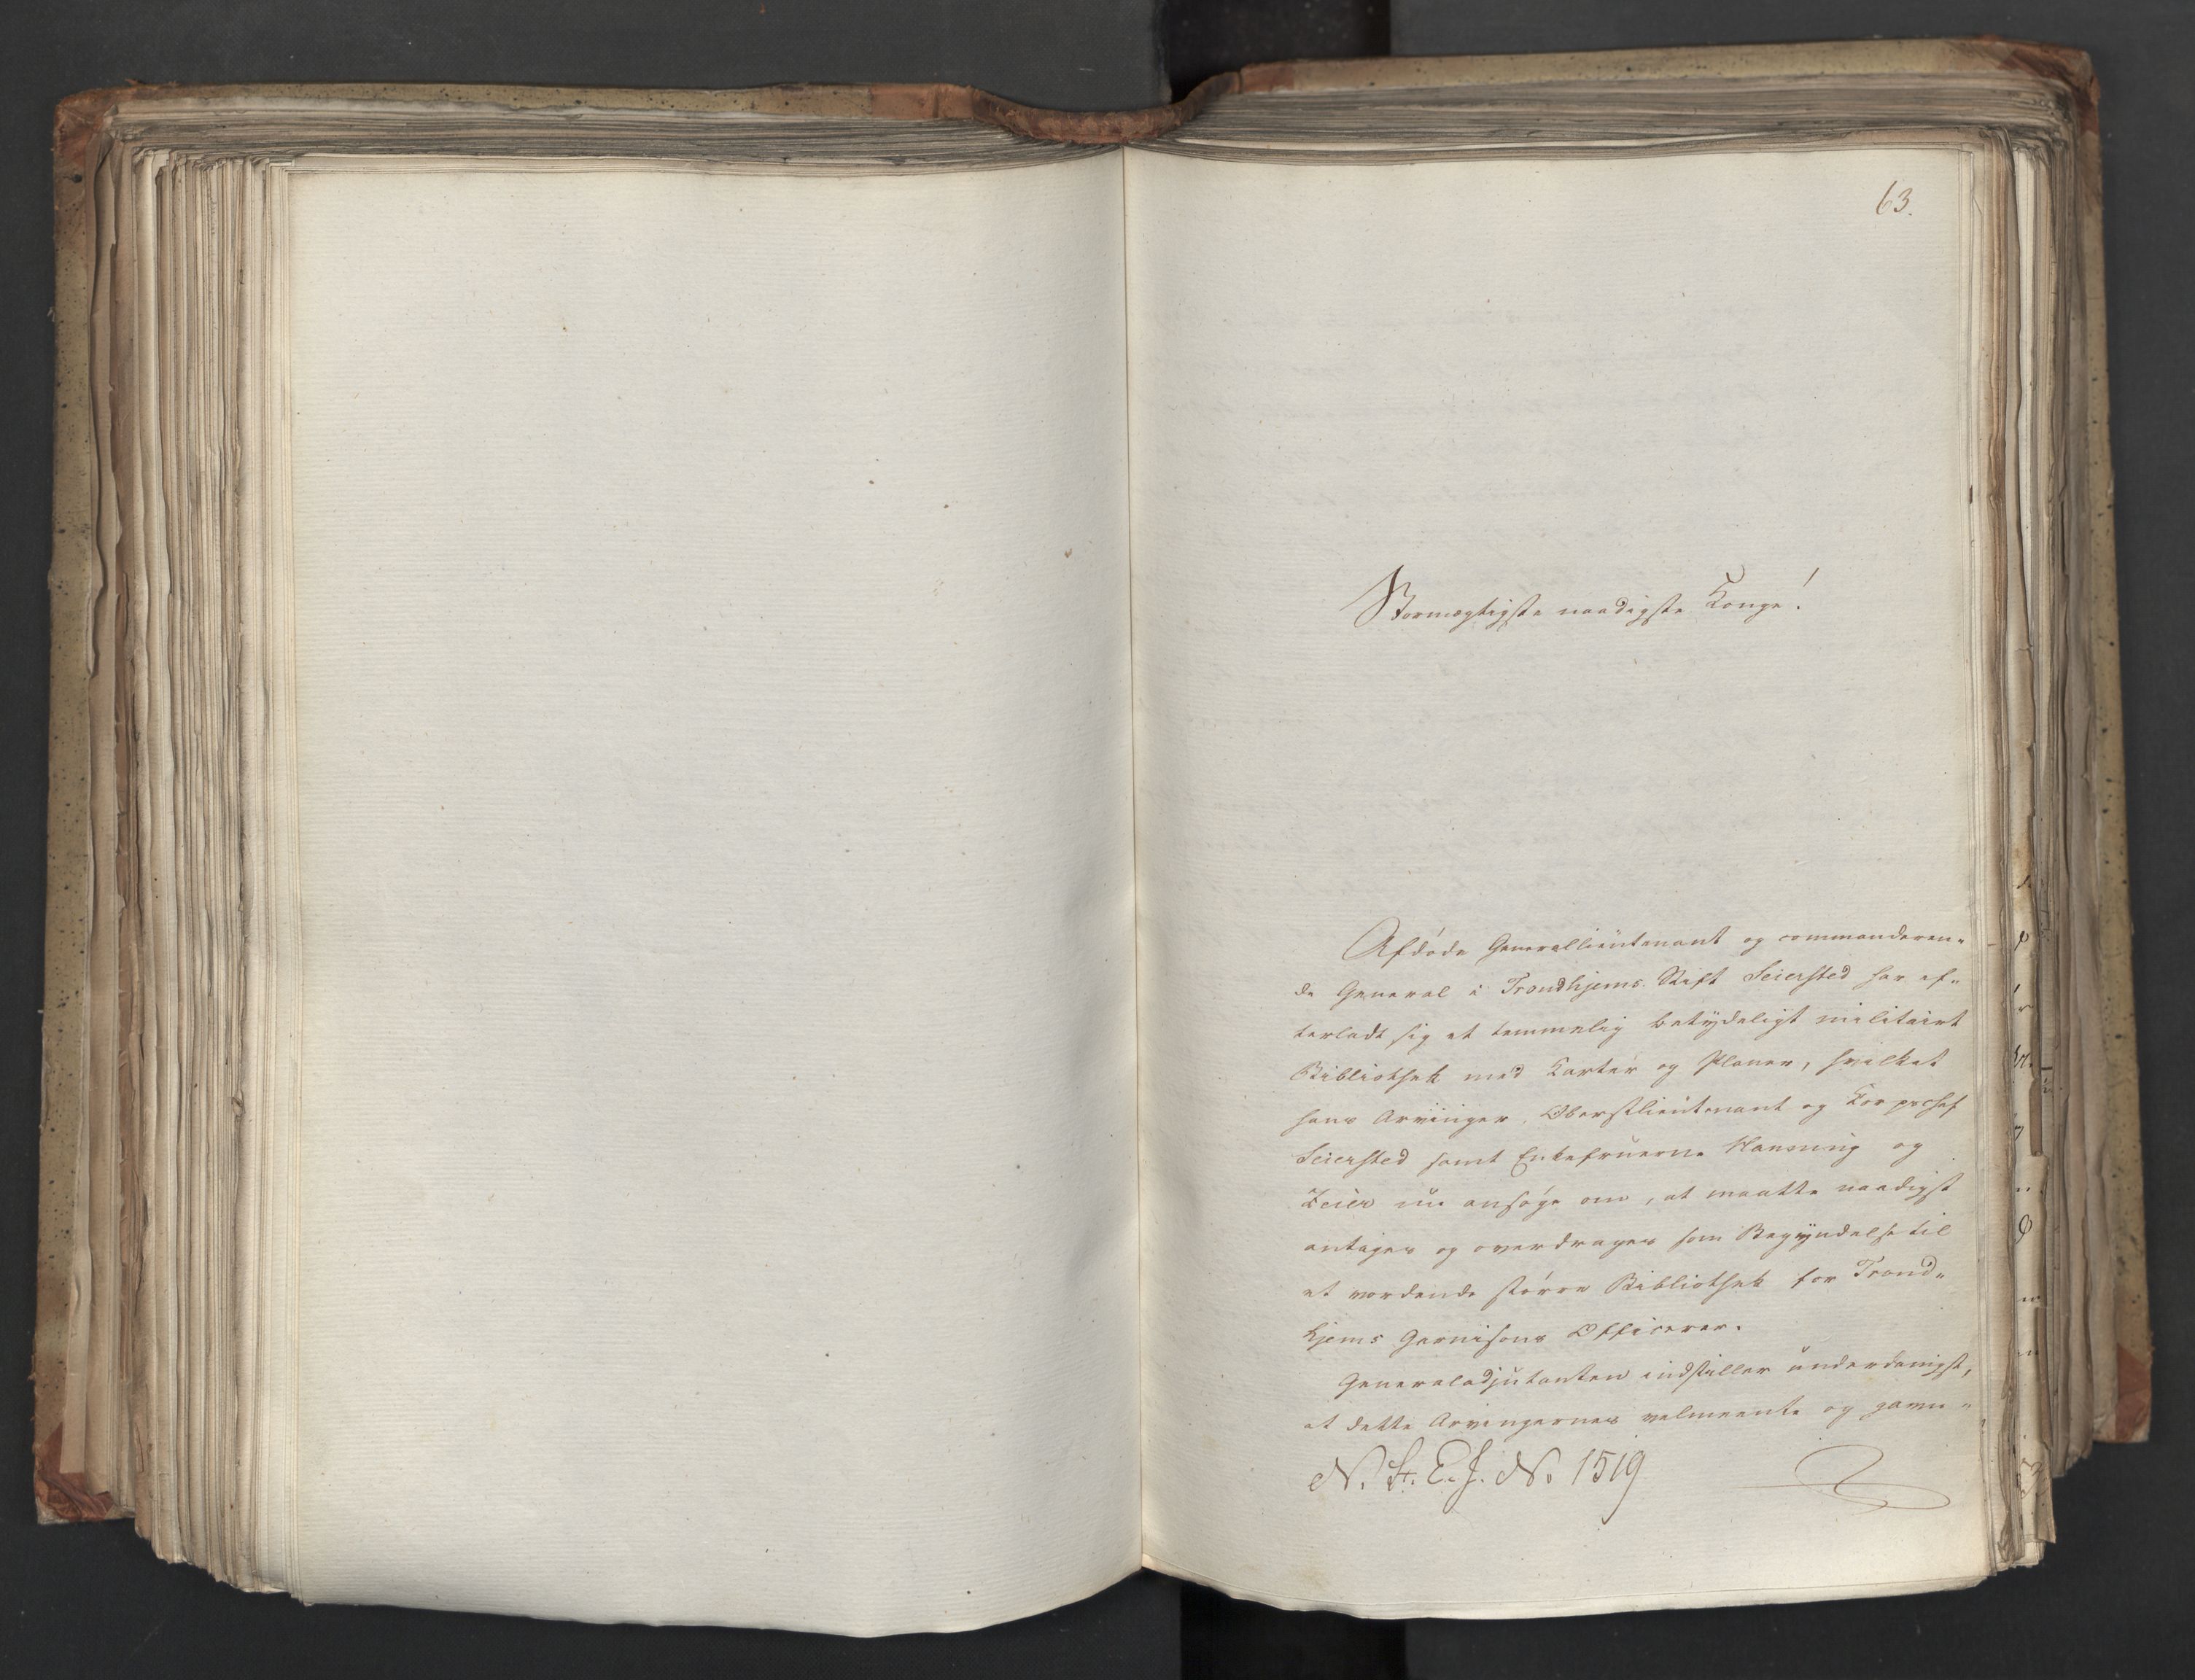 63.
Stormægtigste naadigste Konge!
Afdøde Generallieutenant og commanderen-
de General i Trondhjems Stift Seiersted har ef-
terladt sig et temmelig betydeligt militairt
Bibliothek med Karter og Planer, hvilket
hans Arvinger, Oberstlieutenant og Korpschef
Seiersted samt Enkefruerne Hansung og
Zeier nu ansøge om, at maatte naadigst
antages og overdrages som Begyndelse til
et vordende større Bibliothek for Trond-
hjems Garnisons Officerer.
Generaladjutanten indstiller underdanigst,
at dette Arvingernes velmeente og gavn-
N. St. E. J. No 1519